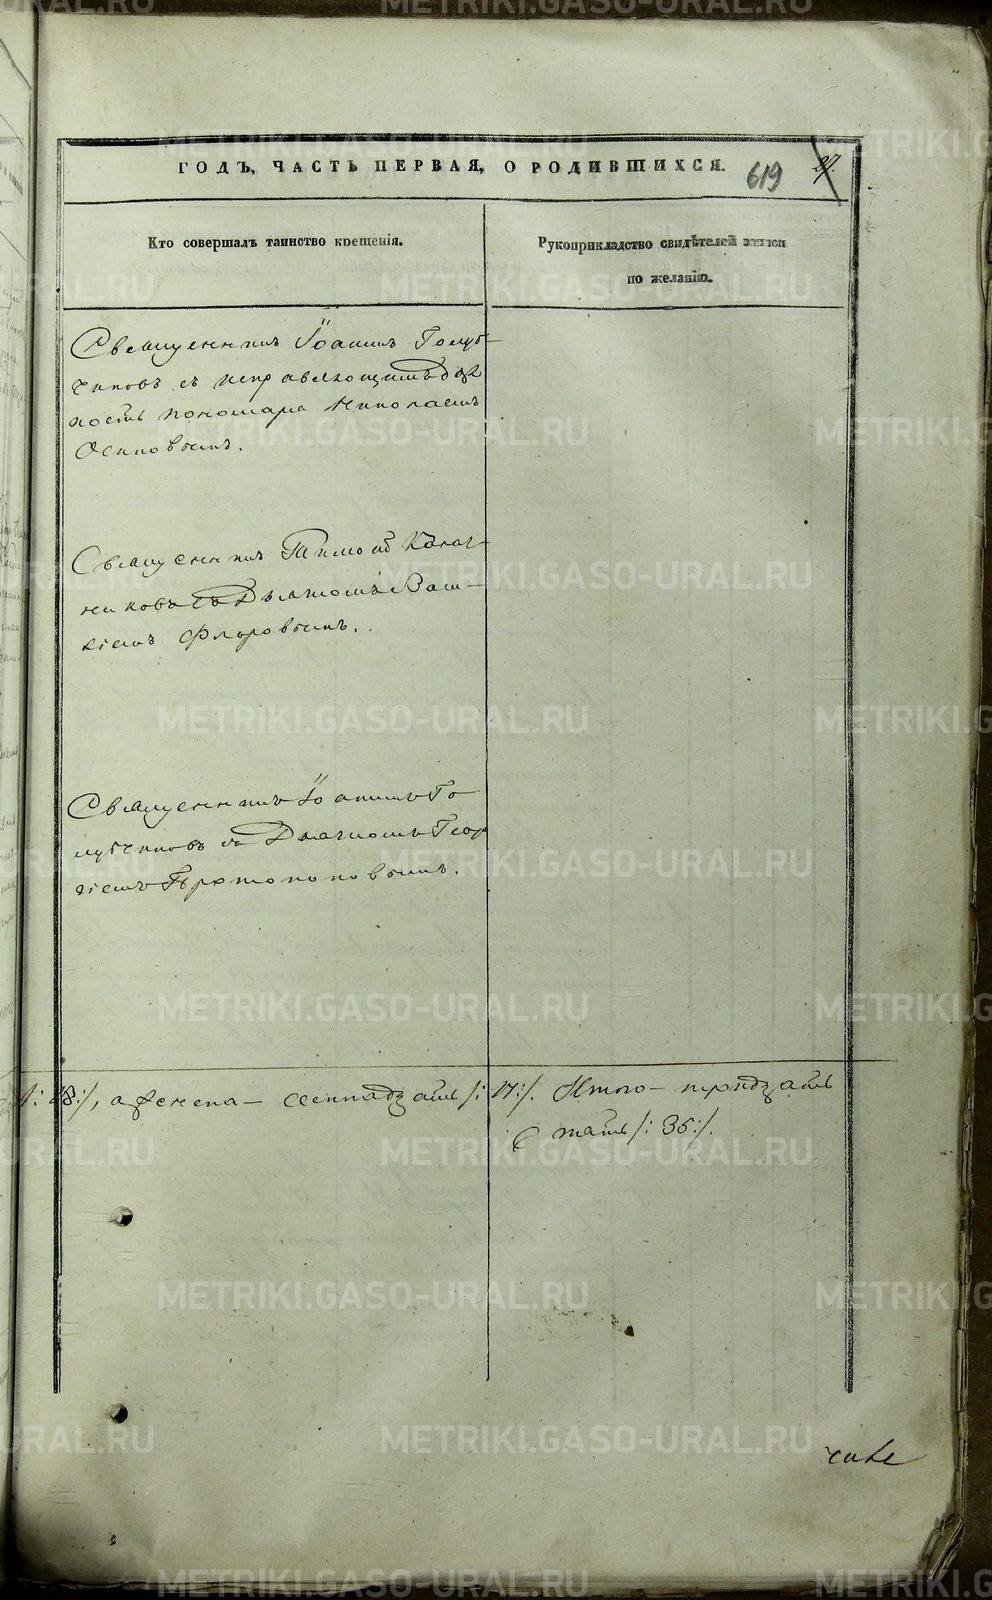 ГОДЪ, ЧАСТЬ ПЕРВАЯ, О РОДИВШИХСЯ.
619
27.
Кто совершалъ таинство крещенія.
Рукоприкладство свидѣтелей записи
по желанію.
Священникъ Іоаннъ Голуб-
чиковъ съ исправляющимъ долж
ность пономаря Николаемъ
Осиповымъ.
Священникъ Тимоѳей
никовъ съ Дьячкомъ
Флоровымъ.
Священникъ Іоаннъ Го
лубчиковъ съ Дьячкомъ Геор
гіемъ Протопоповымъ.
/: 18:/, а женска – семнадцать /: 17:/. Итого – тридцать
пять /: 35:/.
METRIKI.GASO-URAL.RU